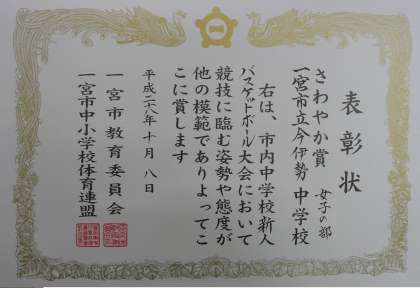 表彰状
さわやか賞 女子の部
一宮市立今伊勢中学校
右は、市内中学校新人
バスケットボール大会において
競技に臨む姿勢や態度が
他の模範でありよってこ
こに賞します
平成二八年十月八日
一宮市教育委員会
一宮市中小学校体育連盟